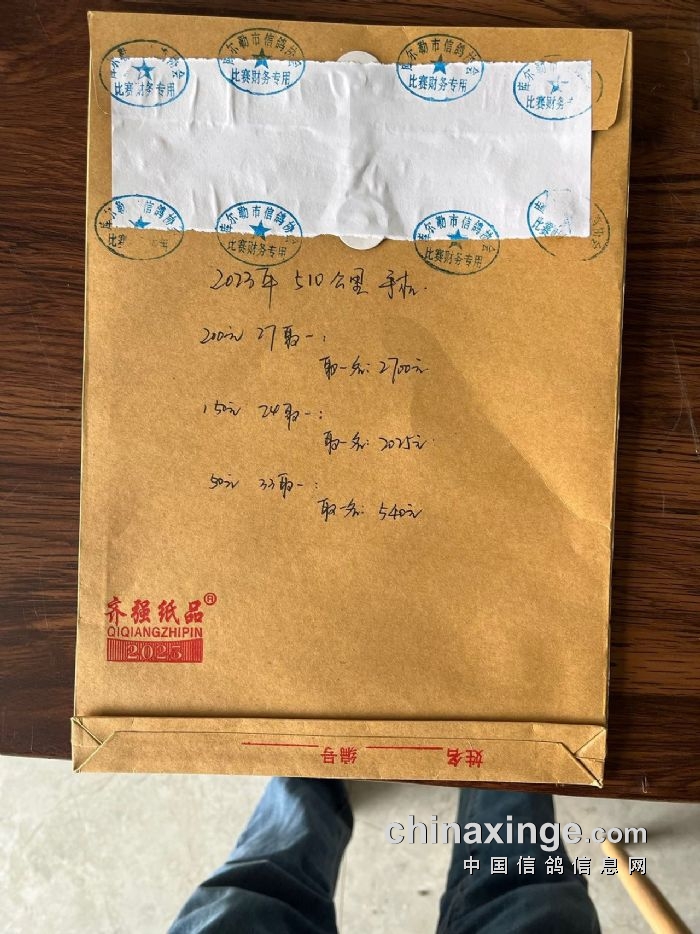 库尔勒市信鸽协会
比赛财务专用
库尔勒市信鸽协会
比赛财务专用
库尔勒市信鸽协会
比赛财务专用
库尔勒市信鸽协会
比赛财务专用
库尔勒市信鸽协会
比赛财务专用
库尔勒市信鸽协会
比赛财务专用
库尔勒市信鸽协会
比赛财务专用
2023年 510公里
200元 27取一:
取一名: 2700元
150元 24取一:
取一名: 2025元
50元 33取一:
取一名: 540元
齐强纸品®
QIQIANGZHIPIN
2023
姓名 编号
chinaxinge.com
中国信鸽信息网